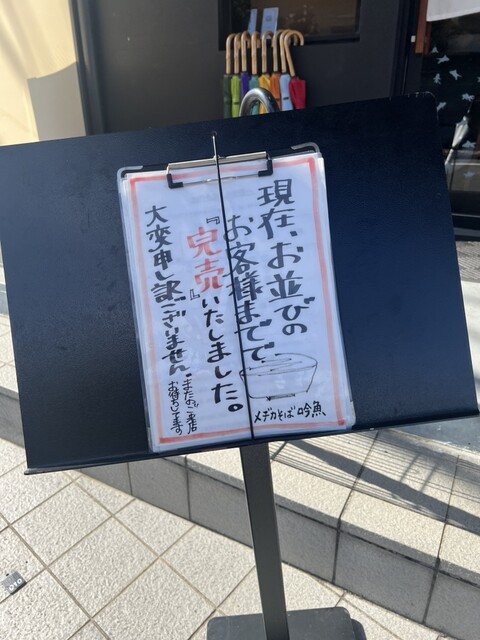 現在、お並びの
お客様までで
『完売』いたしました。
大変申し訳ございません。
またのご来店
お待ちしてます
メヂカそば 吟魚